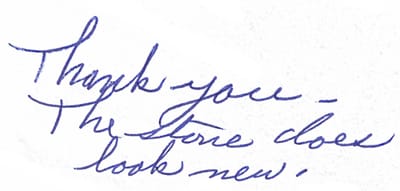 Thank you -
The stone does
look new.